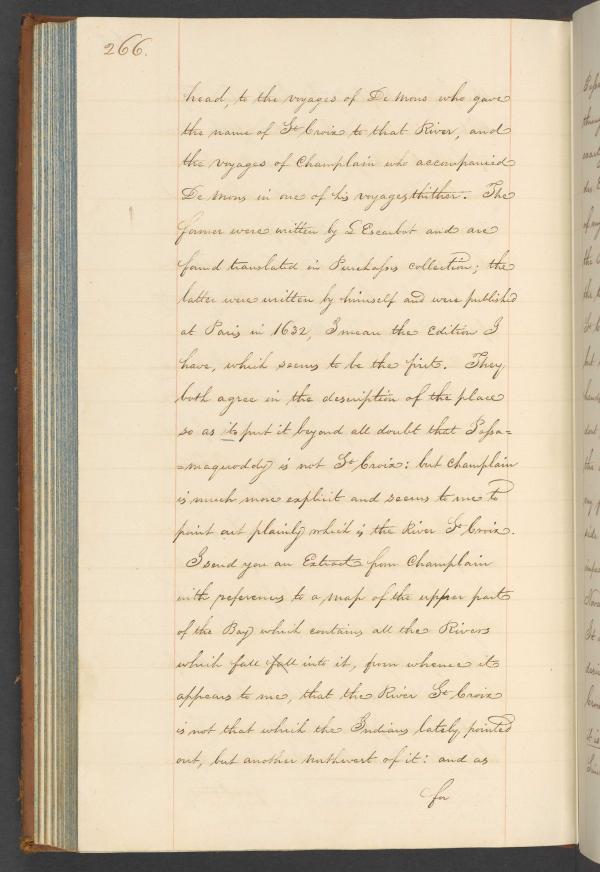 266.
head, to the voyages of De Mons who gave
the name of St Croix to that River, and
the voyages of Champlain who accompanied
De Mons in one of his voyages thither. The
former were written by L'Escarbot and are
found translated in Purchass collection; the
latter were written by himself and were published
at Paris in 1632, I mean the Edition I
have, which seems to be the first. They
both agree in the description of the place
so as to put it beyond all doubt that Passa=
=maquoddy is not St Croix: but Champlain
is much more explicit and seems to me to
point out plainly which is the River St Croix.
I send you an Extract from Champlain
with references to a map of the upper part
of the Bay which contains all the Rivers
which fall fall into it, from whence it
appears to me, that the River St Croix
is not that which the Indians lately pointed
out, but another northwest of it: and as
for